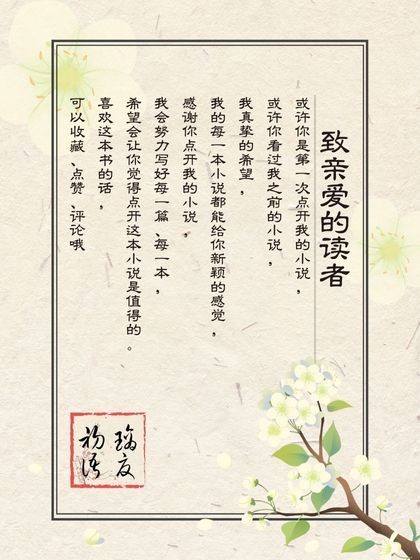 致亲爱的读者
或许你是第一次点开我的小说，
或许你看过我之前的小说，
我真挚的希望，
我的每一本小说都能给你新颖的感觉，
感谢你点开我的小说，
我会努力写好每一篇、每一本，
希望会让你觉得点开这本小说是值得的。
喜欢这本书的话，
可以收藏、点赞、评论哦